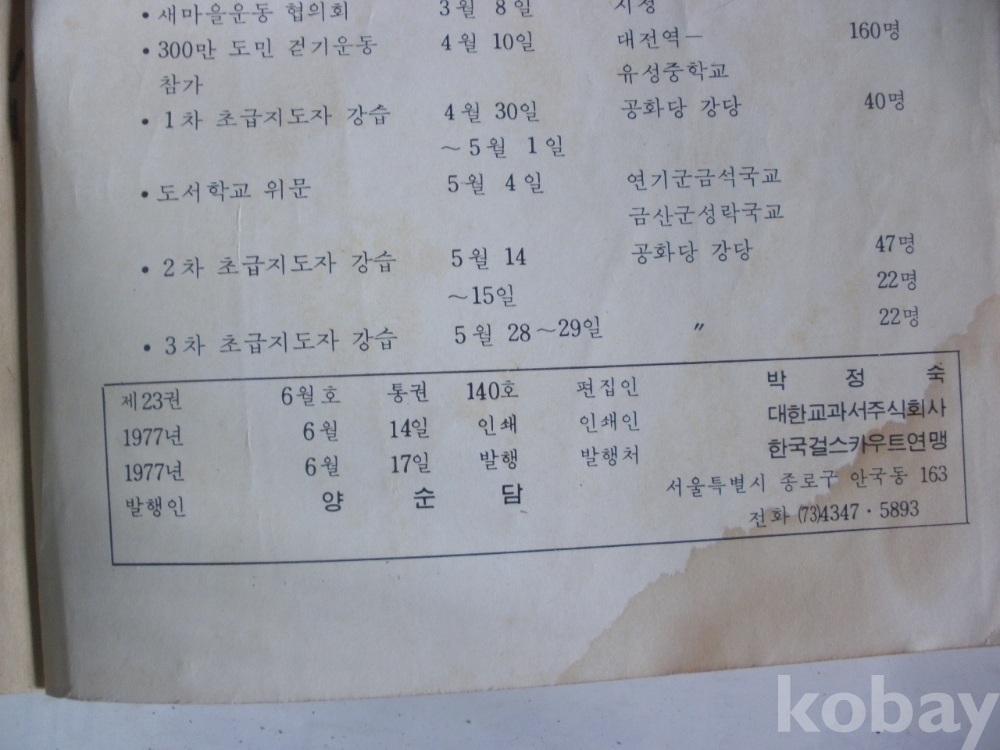 • 새마을운동 협의회 3월 8일 시청
• 300만 도민 걷기운동 4월 10일 대전역— 160명
참가 유성중학교
• 1차 초급지도자 강습 4월 30일 공화당 강당 40명
～5월 1일
• 도서학교 위문 5월 4일 연기군금석국교
금산군성락국교
• 2차 초급지도자 강습 5월 14 공화당 강당 47명
～15일 22명
• 3차 초급지도자 강습 5월 28～29일 〃 22명
제23권 6월호 통권 140호 편집인 박정숙
1977년 6월 14일 인쇄 인쇄인 대한교과서주식회사
1977년 6월 17일 발행 발행처 한국걸스카우트연맹
발행인 양순담 서울특별시 종로구 안국동 163
전화 (73)4347·5893
kobay